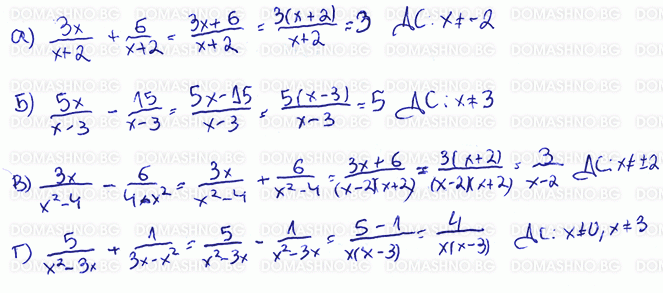 а) 3x/(x+2) + 6/(x+2) = (3x+6)/(x+2) = 3(x+2)/(x+2) = 3 ДС: x≠-2
Б) 5x/(x-3) - 15/(x-3) = (5x-15)/(x-3) = 5(x-3)/(x-3) = 5 ДС: x≠3
В) 3x/(x²-4) - 6/(4-x²) = 3x/(x²-4) + 6/(x²-4) = (3x+6)/((x-2)(x+2)) = 3(x+2)/((x-2)(x+2)) = 3/(x-2) ДС: x≠±2
Г) 5/(x²-3x) + 1/(3x-x²) = 5/(x²-3x) - 1/(x²-3x) = (5-1)/(x(x-3)) = 4/(x(x-3)) ДС: x≠0, x≠3